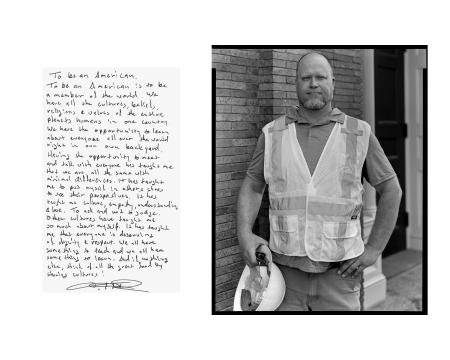 To be an American.
To be an American is to be
a member of the world. We
have all the cultures, beliefs,
religions & values of the entire
planets humans in one country.
We have the opportunity to learn
about everyone all over the world
right in our own backyard.
Having the opportunity to meet
and talk with everyone has taught me
that we are all the same with
minimal differences. It has taught
me to put myself in others shoes
to see their perspectives. It has
taught me culture, empathy, understanding
& love. To ask and not to judge.
Other cultures have taught me
so much about myself. It has taught
me that everyone is deserving
of dignity & respect. We all have
something to teach and we all have
something to learn. And if anything
else, think of all the great food by
sharing cultures!